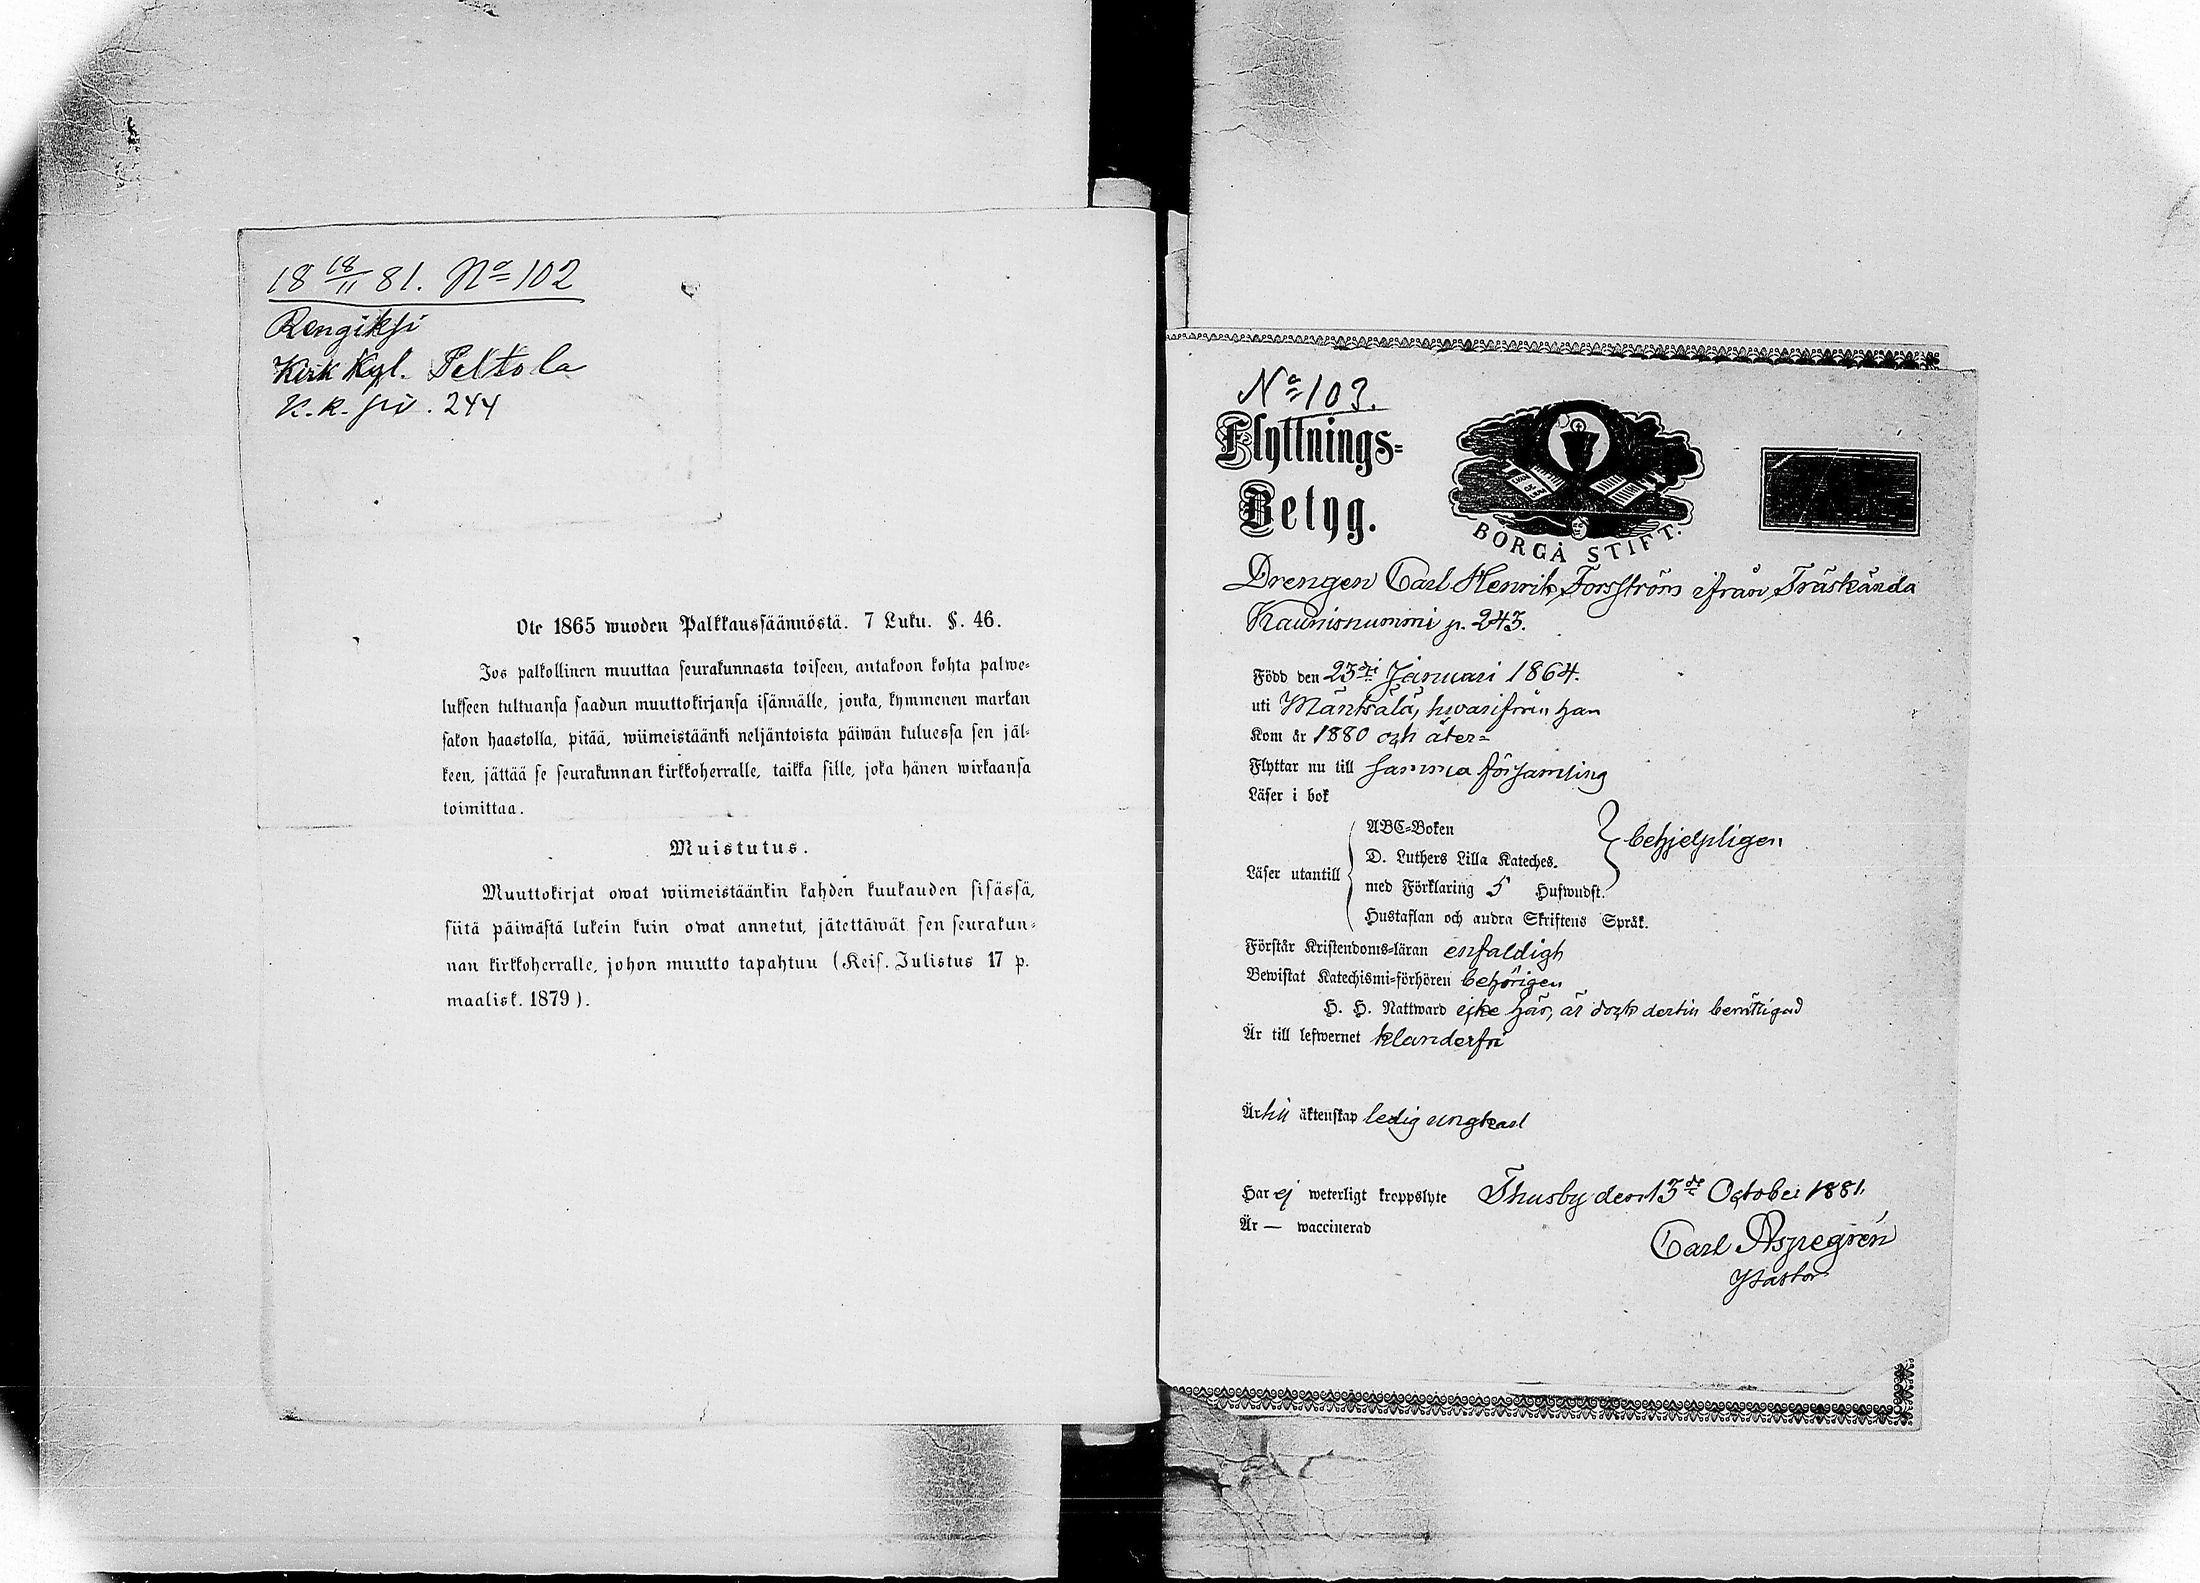 18 18/11 81. No 102
Rengiksi
Kirk Kyl. Peltola
K.k. siv. 244
Ote 1865 wuoden Palkkaussäännöstä. 7 Luku. §. 46.
Jos palkollinen muuttaa seurakunnasta toiseen, antakoon kohta palwe-
lukseen tultuansa saadun muuttokirjansa isännälle, jonka, kymmenen markan
sakon haastolla, pitää, wiimeistäänki neljäntoista päiwän kuluessa sen jäl-
keen, jättää se seurakunnan kirkkoherralle, taikka sille, joka hänen wirkaansa
toimittaa.
Muistutus.
Muuttokirjat owat wiimeistäänkin kahden kuukauden sisässä,
siitä päiwästä lukein kuin owat annetut, jätettäwät sen seurakun-
nan kirkkoherralle, johon muutto tapahtuu (Keis. Julistus 17 p.
maalisk. 1879).
No 103.
Flyttnings-
Betyg.
BORGÅ STIFT.
Drengen Carl Henrik Forsström ifrån Träskända
Kaunisnummi p. 243.
Född den 23di Januari 1864.
uti Mäntsälä, hwarifrån han
Kom år 1880 och åter-
Flyttar nu till samma församling
Läser i bok
ABC-Boken
D. Luthers Lilla Kateches.
behjelpligen
Läser utantill
med Förklaring 5 Hufwudst.
Hustaflan och andra Skriftens Språk.
Förstår Kristendoms-läran enfaldigt
Bewistat Katechismi-förhören behörigen
H. H. Nattward icke här, är dock dertill berättigad
Är till lefwernet klanderfri
Är till äktenskap ledig ungkarl
Har ej weterligt kroppslyte Thusby den 13de October 1881.
Är — waccinerad
Carl Aspegrén
Pastor